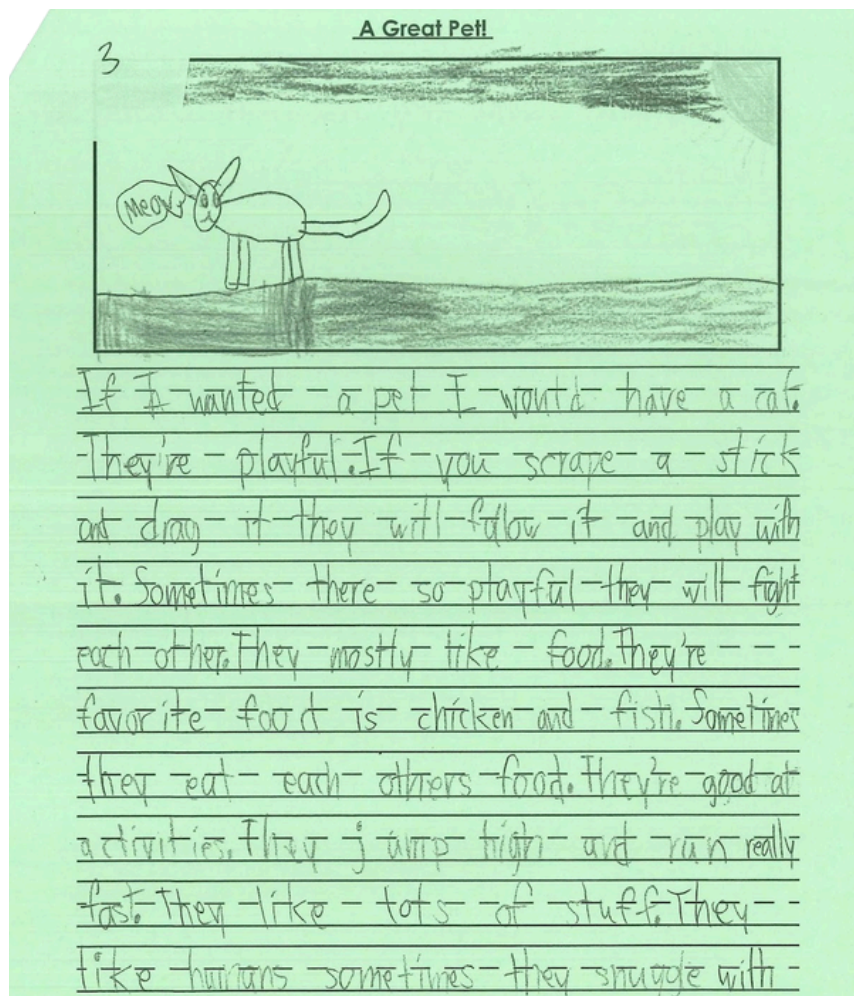 A Great Pet!
3
Meow
If I wanted a pet I would have a cat.
They're playful. If you scrape a stick
and drag it they will follow it and play with
it. Sometimes there so playful they will fight
each other. They mostly like food. They're
favorite food is chicken and fish. Sometimes
they eat each others food. They're good at
activities. They jump high and run really
fast. They like lots of stuff. They
like humans sometimes they snuggle with